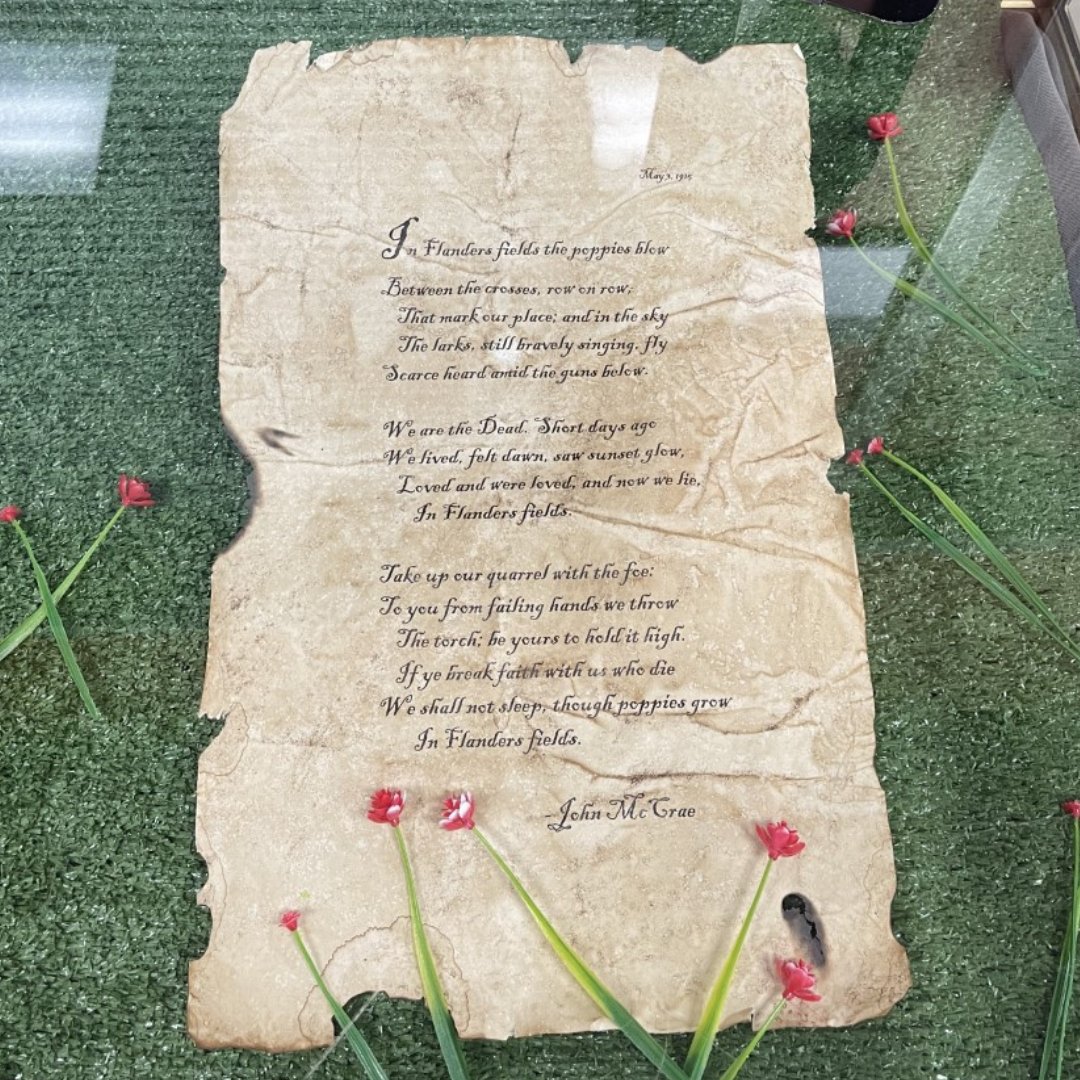 May 3, 1915
In Flanders fields the poppies blow
Between the crosses, row on row,
That mark our place; and in the sky
The larks, still bravely singing, fly
Scarce heard amid the guns below.
We are the Dead. Short days ago
We lived, felt dawn, saw sunset glow,
Loved and were loved, and now we lie,
In Flanders fields.
Take up our quarrel with the foe:
To you from failing hands we throw
The torch; be yours to hold it high.
If ye break faith with us who die
We shall not sleep, though poppies grow
In Flanders fields.
-John McCrae